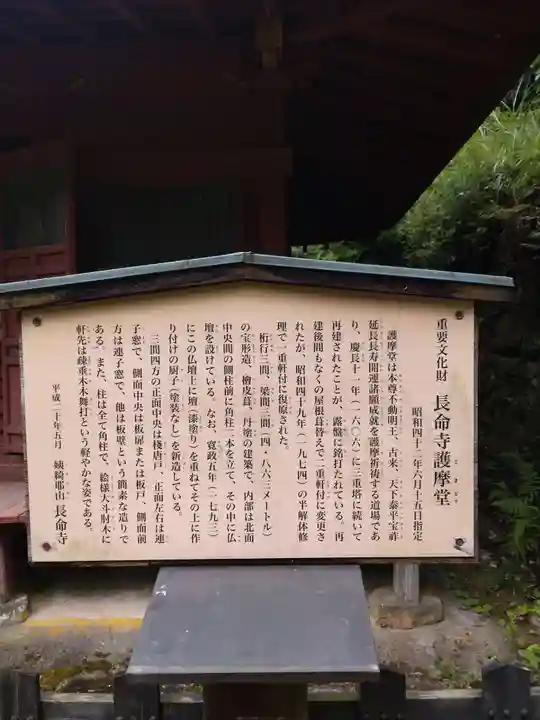 重要文化財　長命寺護摩堂
昭和四十二年六月十五日指定
護摩堂は本尊不動明王、古来、天下泰平宝祚
延長長寿開運諸願成就を護摩祈祷する道場であ
り、慶長十一年（一六〇六）に三重塔に続いて
再建されたことが、露盤に銘打たれている。再
建後間もなくの屋根葺替えで二重軒付に変更さ
れたが、昭和四十九年（一九七四）の半解体修
理で一重軒付に復原された。
桁行三間、梁間三間（四・八六三メートル）
の宝形造、檜皮葺、丹塗の建築で、内部は北面
中央間の側柱前に角柱二本を立て、その中に仏
壇を設けている。なお、寛政五年（一七九三）
にこの仏壇上に壇（漆塗り）を重ねてその上に作
り付けの厨子（塗装なし）を新造している。
三間四方の正面中央は棧唐戸、正面左右は連
子窓で、側面中央は板扉または板戸、側面前
方は連子窓で、他は板壁という簡素な造りで
ある。また、柱は全て角柱で、絵様大斗肘木に
軒先は疎垂木木舞打という軽やかな姿である。
平成二十年五月　姨綺耶山　長命寺